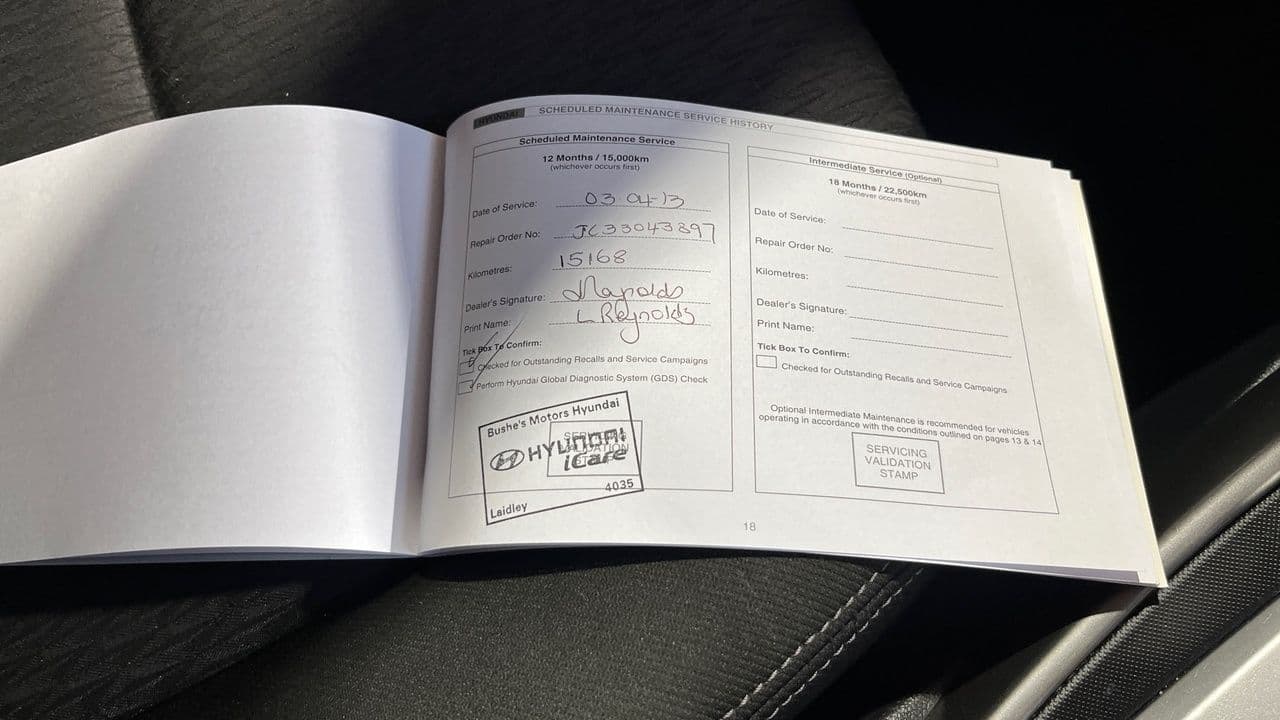 HYUNDAI SCHEDULED MAINTENANCE SERVICE HISTORY
Scheduled Maintenance Service
12 Months / 15,000km
(whichever occurs first)
Date of Service: 03-04-13
Repair Order No: JC33043897
Kilometres: 15168
Dealer's Signature: Reynolds
Print Name: L Reynolds
Tick Box To Confirm:
Checked for Outstanding Recalls and Service Campaigns
Perform Hyundai Global Diagnostic System (GDS) Check
Bushe's Motors Hyundai
HYUNDAI
iCare
4035
Laidley
SERVICING
VALIDATION
STAMP
Intermediate Service (Optional)
18 Months / 22,500km
(whichever occurs first)
Date of Service:
Repair Order No:
Kilometres:
Dealer's Signature:
Print Name:
Tick Box To Confirm:
Checked for Outstanding Recalls and Service Campaigns
Optional Intermediate Maintenance is recommended for vehicles
operating in accordance with the conditions outlined on pages 13 & 14
SERVICING
VALIDATION
STAMP
18